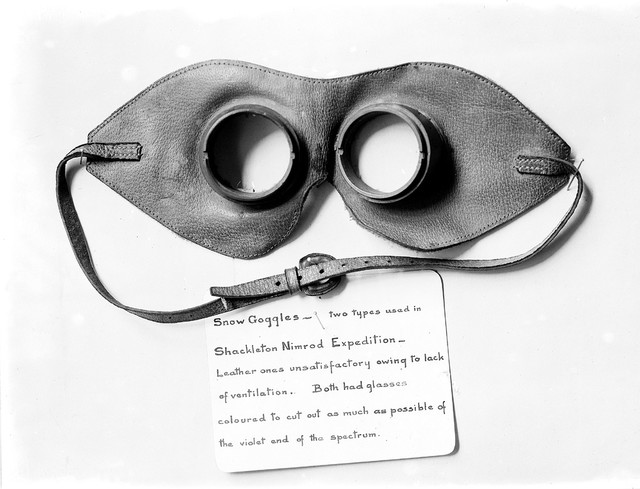 Snow Goggles — two types used in
Shackleton Nimrod Expedition —
Leather ones unsatisfactory owing to lack
of ventilation. Both had glasses
coloured to cut out as much as possible of
the violet end of the spectrum.